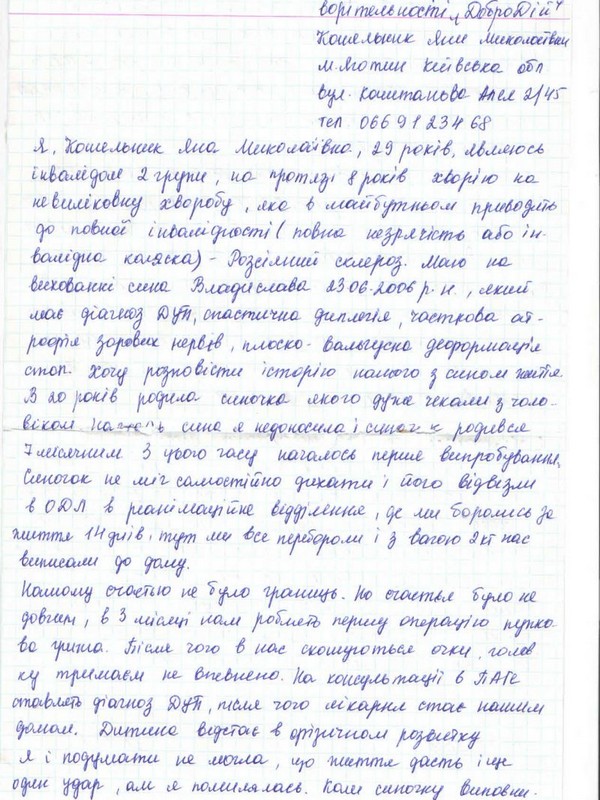 ворительності „ДоброДій"
Кошельник Яни Миколаївни
м. Яготин Київська обл
вул. Каштанова Алея 2/45
тел 066 91 234 68
Я, Кошельник Яна Миколаївна, 29 років, являюсь
інвалідом 2 групи, на протязі 8 років хворію на
невиліковну хворобу, яка в майбутньом приводить
до повної інвалідності (повна незрячість або ін-
валідна коляска) - Розсіяний склероз. Маю на
вихованні сина Владислава 23.06.2006 р.н., який
має діагноз ДЦП, спастична диплегія, часткова ат-
рофія зорових нервів, плоско-вальгусна деформація
стоп. Хочу розповісти історію нашого з сином життя
В 20 років родила синочка якого дуже чекали з чоло-
віком сина я недоносила і родився
7 місячним З цього часу началось перше випробування.
Синочок не міг самостійно дихати і його відвезли
в ОДЛ в реанімаційне відділення, де ми боролись за
життя 14 днів, тут ми все перебороли і з вагою 2 кг нас
виписали до дому.
Нашому счастью не було границь. Но счастья було не
довгим, в 3 місяці нам роблять першу операцію пупко-
ва грижа. Після чого в нас скошуються очки, голов
ку тримаєм не впевнено. На консультації в
ставлять діагноз ДЦП, після чого лікарня стає нашим
домом. Дитина відстає в фізичному розвитку
Я і подумати не могла, що життя дасть іще
один удар, ал я помилялась. Коли синочку виповни-